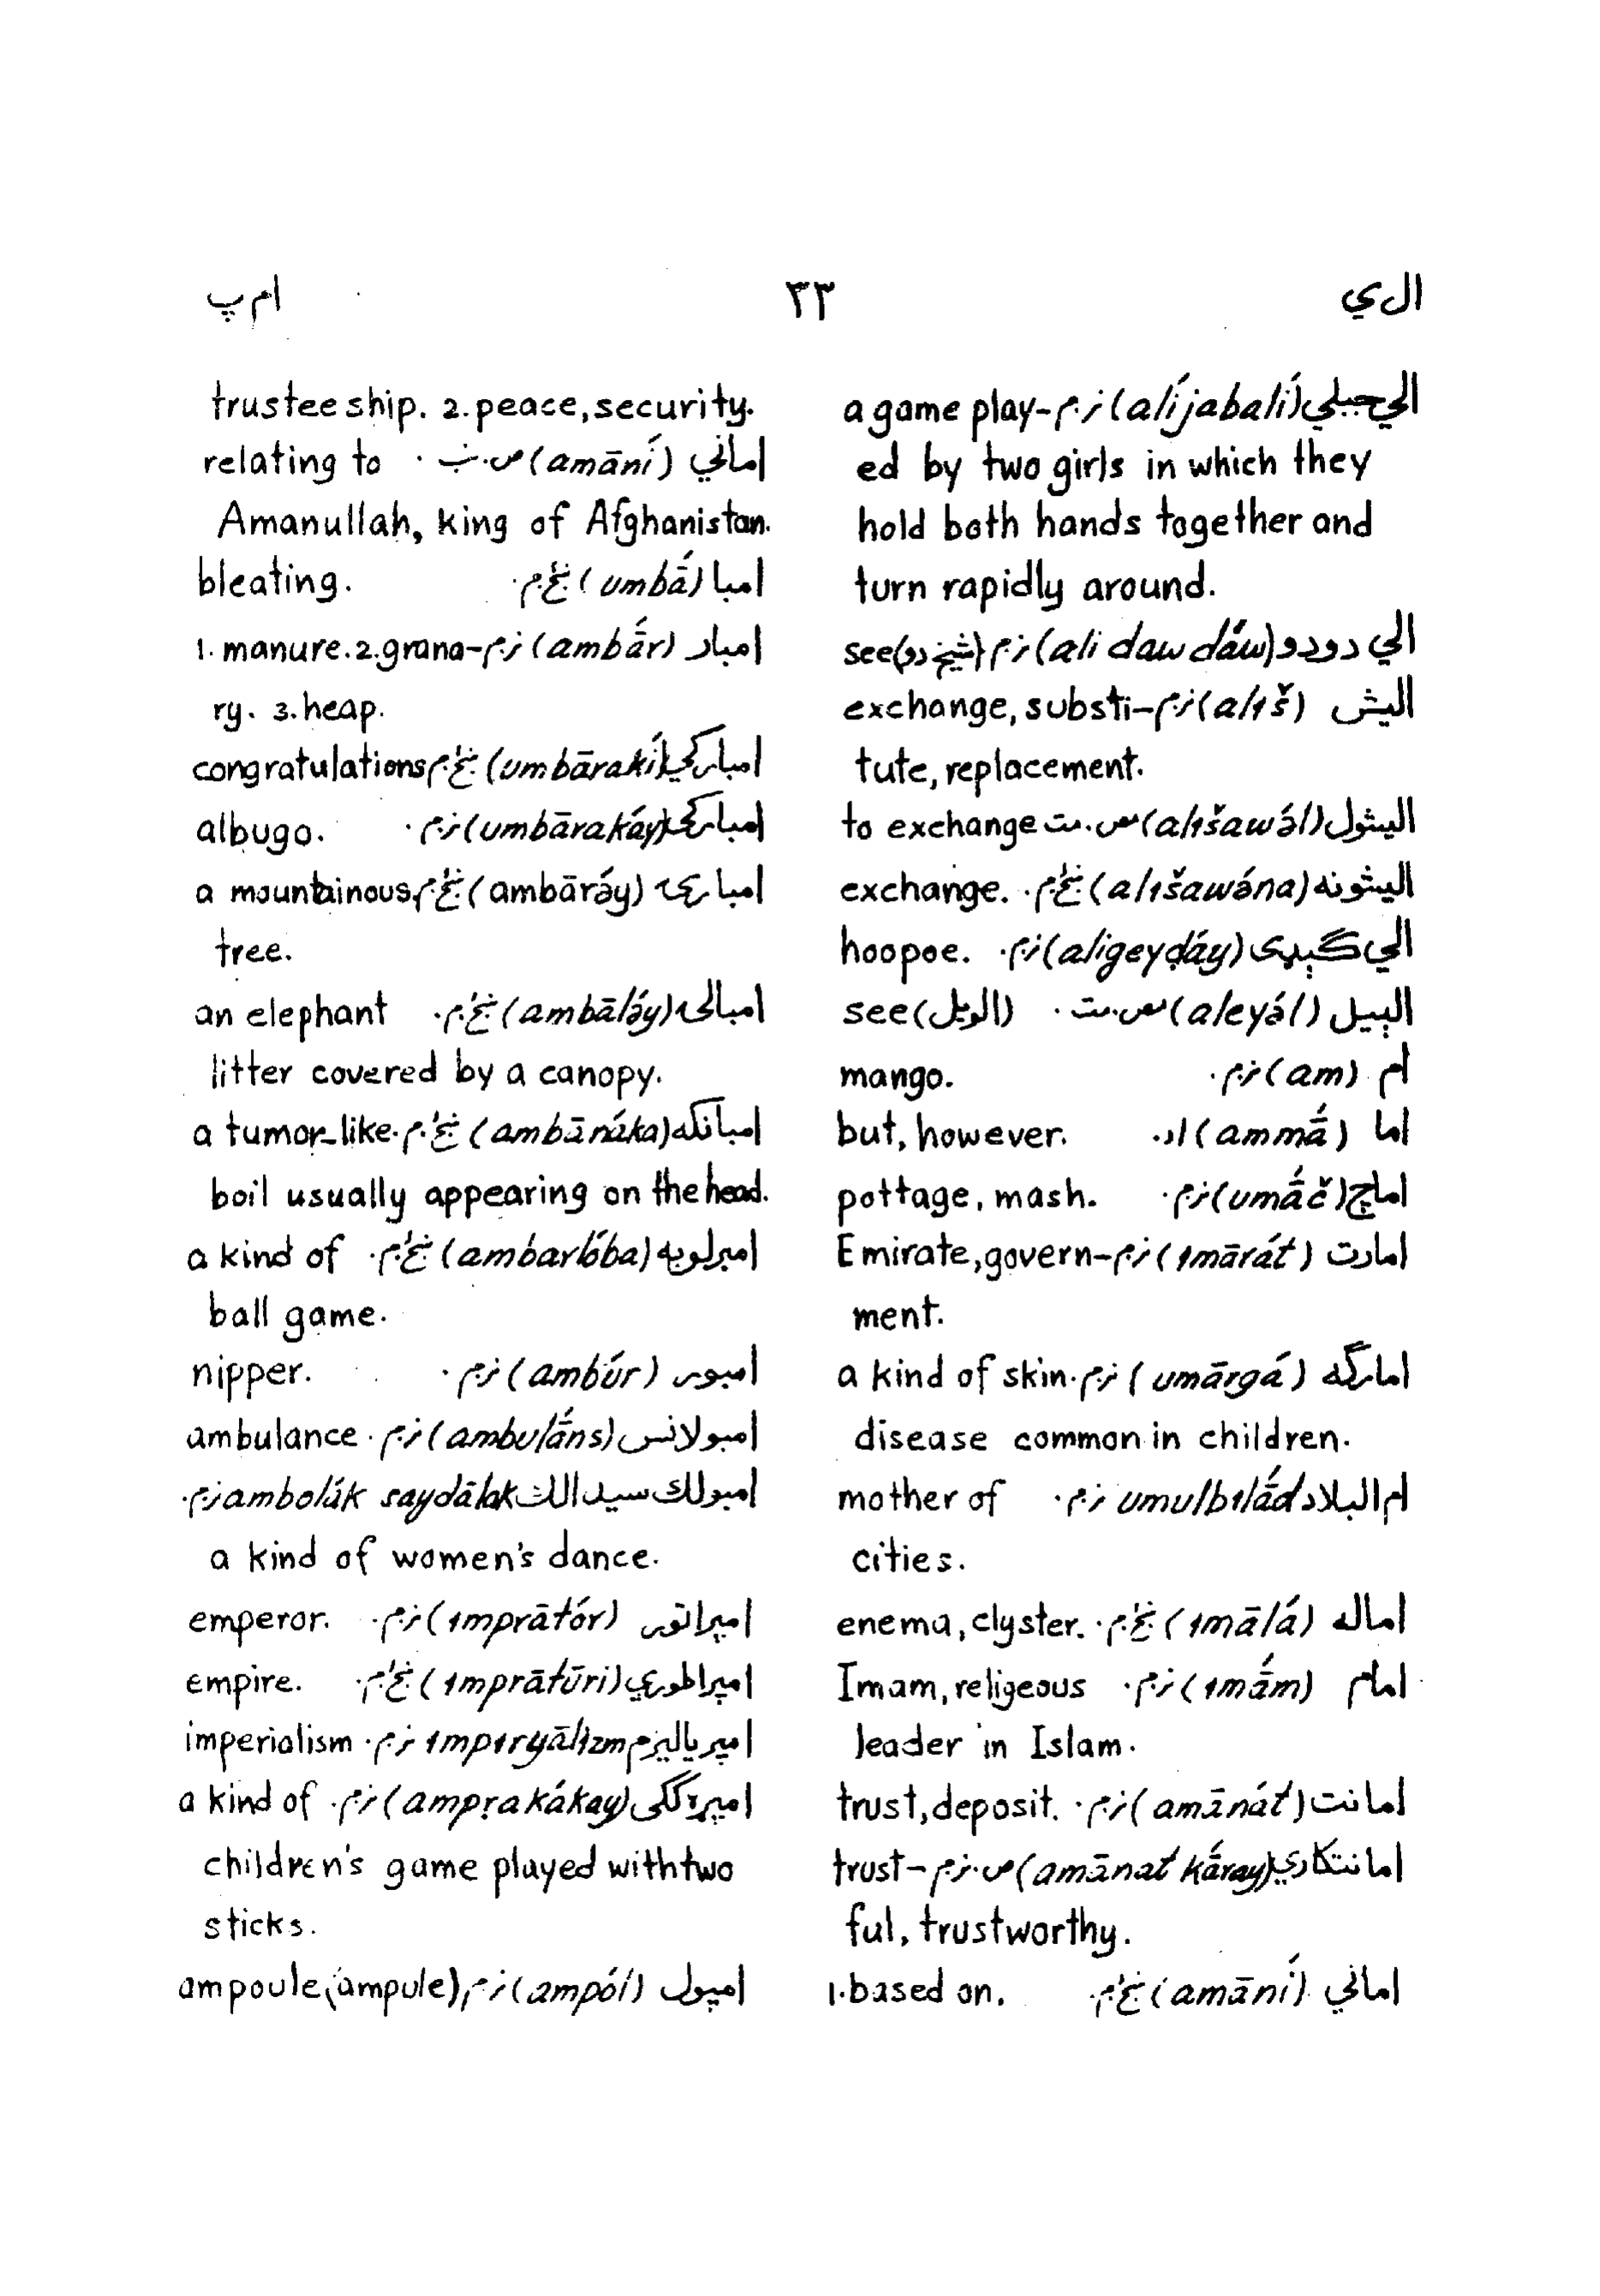 ال ي ٣٣ ام پ
الي جبلي (alíjabalí) نر.م a game play-
ed by two girls in which they
hold both hands together and
turn rapidly around.
الي دودو (ali daw dā́w) نر.م see (شيخ دو)
اليش (alıš) نر.م exchange, substi-
tute, replacement.
اليشول (alıšawə́l) ص.مت to exchange
اليشونه (alıšawə́na) ښځ.م. exchange.
الي گېډى (aligeyḍáy) نر.م. hoopoe.
الېيل (aleyə́l) ص.مت. see (الويل)
ام (am) نر.م. mango.
اما (ammā́) اد. but, however.
اماچ (umā́č) نر.م. pottage, mash.
امارت (ımārát) نر.م Emirate, govern-
ment.
امارگه (umārgá) نر.م. a kind of skin
disease common in children.
ام البلاد umulbılā́d نر.م. mother of
cities.
اماله (ımālá) ښځ.م. enema, clyster.
امام (ımā́m) نر.م. Imam, religeous
leader in Islam.
امانت (amānát) نر.م. trust, deposit.
امانتكاري (amānat kā́ray) ص.نر.م trust-
ful, trustworthy.
اماني (amāní) ښځ.م. 1. based on.
trusteeship. 2. peace, security.
اماني (amāní) ص.نب. relating to
Amanullah, king of Afghanistan.
امبا (umbā́) ښځ.م. bleating.
امبار (ambā́r) نر.م 1. manure. 2. grana-
ry. 3. heap.
امباركي (umbārakí) ښځ.م congratulations
امباركى (umbārakáy) نر.م. albugo.
امبارۍ (ambārə́y) ښځ.م a mountainous
tree.
امبالۍ (ambālə́y) ښځ.م. an elephant
litter covered by a canopy.
امبانكه (ambānáka) ښځ.م. a tumor-like
boil usually appearing on the head.
امبرلوبه (ambarlóba) ښځ.م. a kind of
ball game.
امبور (ambúr) نر.م. nipper.
امبولانس (ambulā́ns) نر.م. ambulance
امبولك سيدالك ambolák saydālak نر.م.
a kind of women's dance.
امپراتور (ımprātór) نر.م. emperor.
امپراطوري (ımprātūri) ښځ.م. empire.
امپرياليزم ımpıryālızm نر.م. imperialism
امپړككى (ampṛakákay) نر.م. a kind of
children's game played with two
sticks.
امپول (ampól) نر.م ampoule, (ampule)